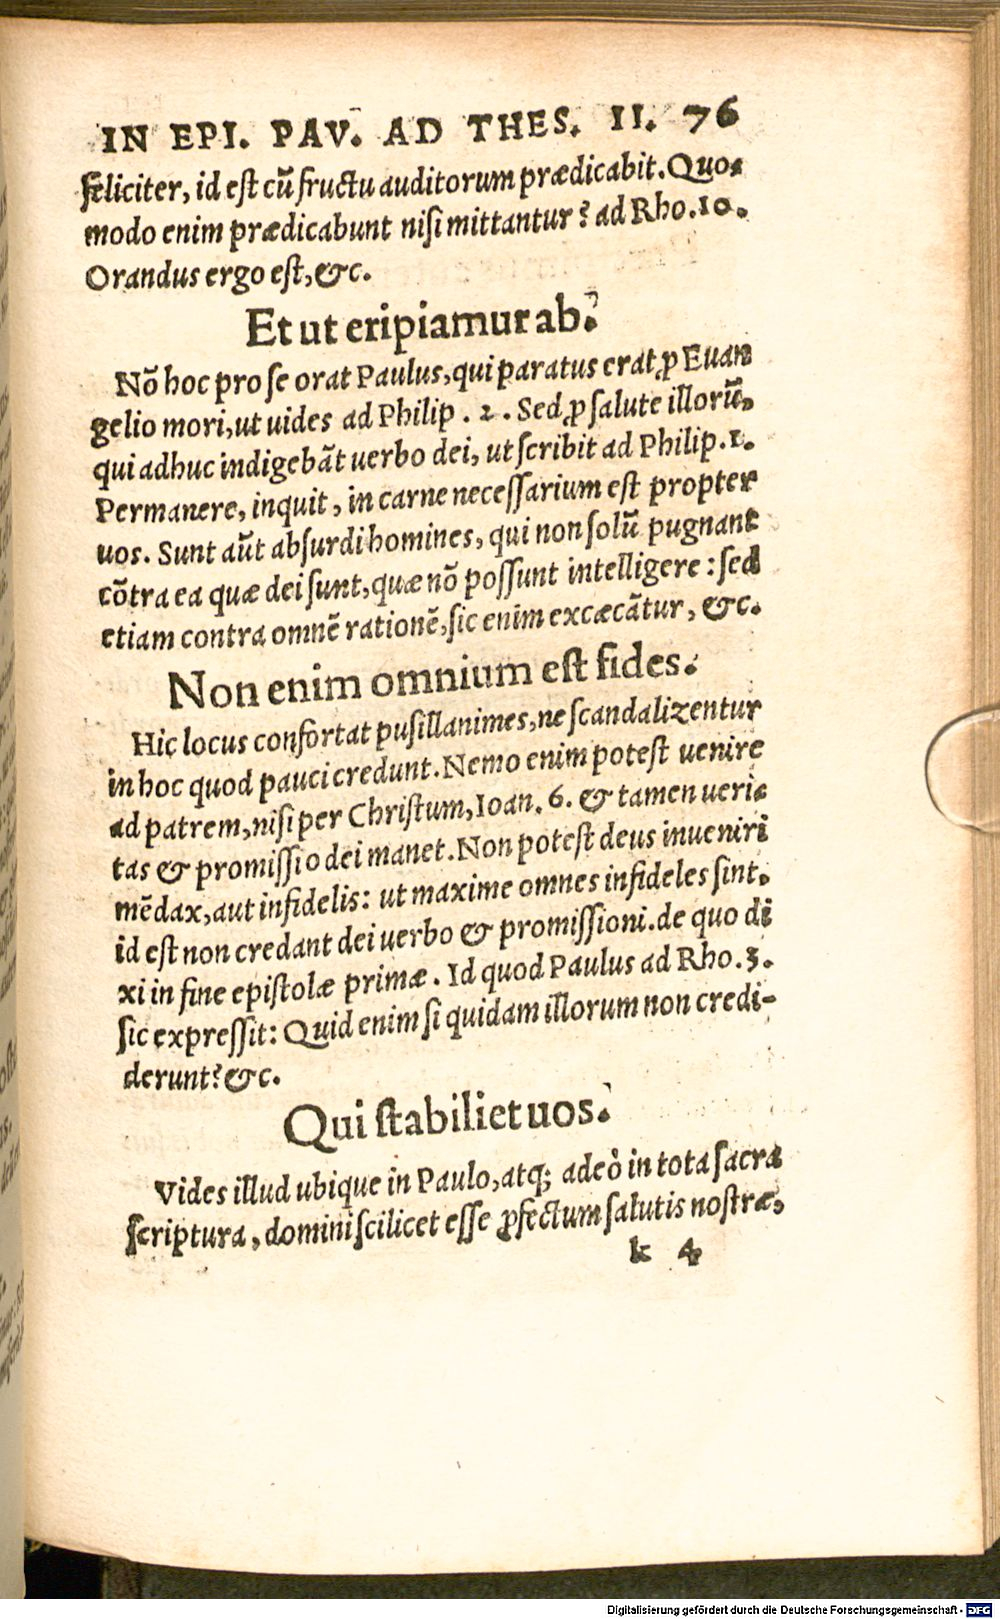 IN EPI. PAV. AD THES. II. 76
feliciter, id est cũ fructu auditorum prædicabit. Quo-
modo enim prædicabunt nisi mittantur? ad Rho. 10.
Orandus ergo est, &c.
Et ut eripiamur ab.
Nõ hoc pro se orat Paulus, qui paratus erat ꝓ Euan
gelio mori, ut uides ad Philip. 2. Sed ꝓ salute illorũ,
qui adhuc indigebãt uerbo dei, ut scribit ad Philip. 1.
Permanere, inquit, in carne necessarium est propter
uos. Sunt aũt absurdi homines, qui non solũ pugnant
cõtra ea quæ dei sunt, quæ nõ possunt intelligere: sed
etiam contra omnẽ rationẽ, sic enim excæcãtur, &c.
Non enim omnium est fides.
Hic locus confortat pusillanimes, ne scandalizentur
in hoc quod pauci credunt. Nemo enim potest uenire
ad patrem, nisi per Christum, Ioan. 6. & tamen ueri-
tas & promissio dei manet. Non potest deus inueniri
mẽdax, aut infidelis: ut maxime omnes infideles sint,
id est non credant dei uerbo & promissioni. de quo di
xi in fine epistolæ primæ. Id quod Paulus ad Rho. 3.
sic expressit: Quid enim si quidam illorum non credi-
derunt? &c.
Qui stabiliet uos.
Vides illud ubique in Paulo, atq; adeò in tota sacra
scriptura, domini scilicet esse ꝓfectum salutis nostræ,
k 4
Digitalisierung gefördert durch die Deutsche Forschungsgemeinschaft - DFG